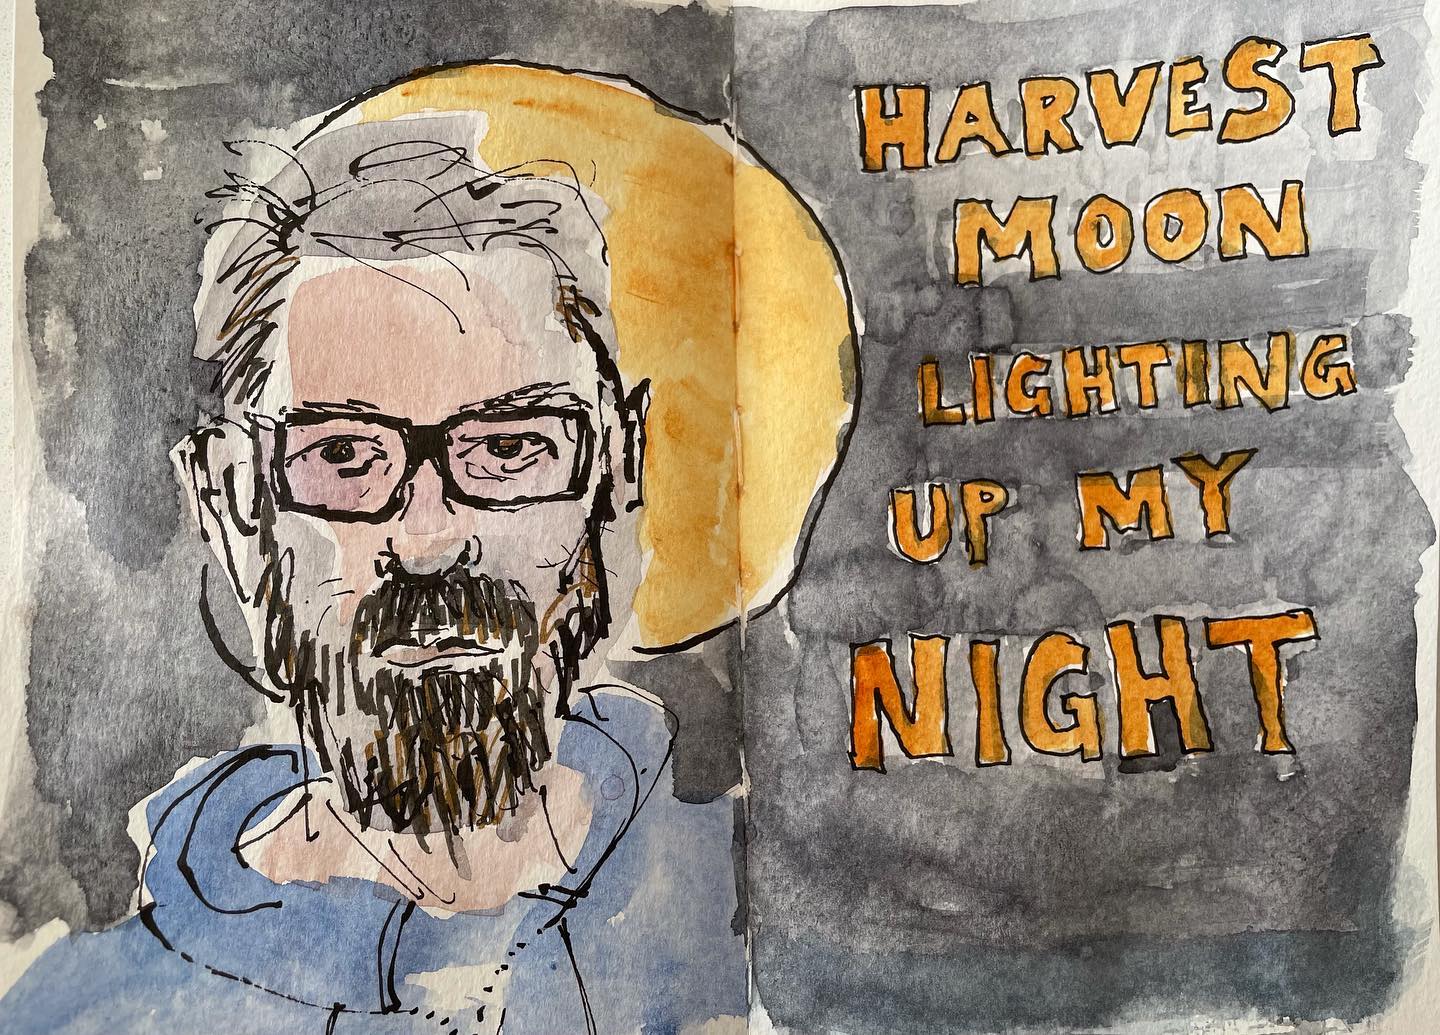 HARVEST
MOON
LIGHTING
UP MY
NIGHT